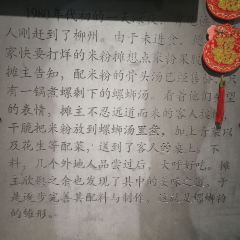 1980年代初的一天
人刚赶到了柳州。由于未进食,
家快要打烊的米粉摊想点家粉果腹
摊主告知,配米粉的骨头汤已
有一锅煮螺剩下的螺蛳汤。看着他们
的表情,摊主不忍远道而来的客人
干脆把米粉放到螺蛳汤里煮,加上青菜以
及花生等配菜,送到了客人的桌上。不
料,几个外地人品尝过后,大呼好吃。摊
主欣慰之余也发现了其中的美味之道,于
是逐步完善其配料与制作,这就是螺蛳粉
的雏形。